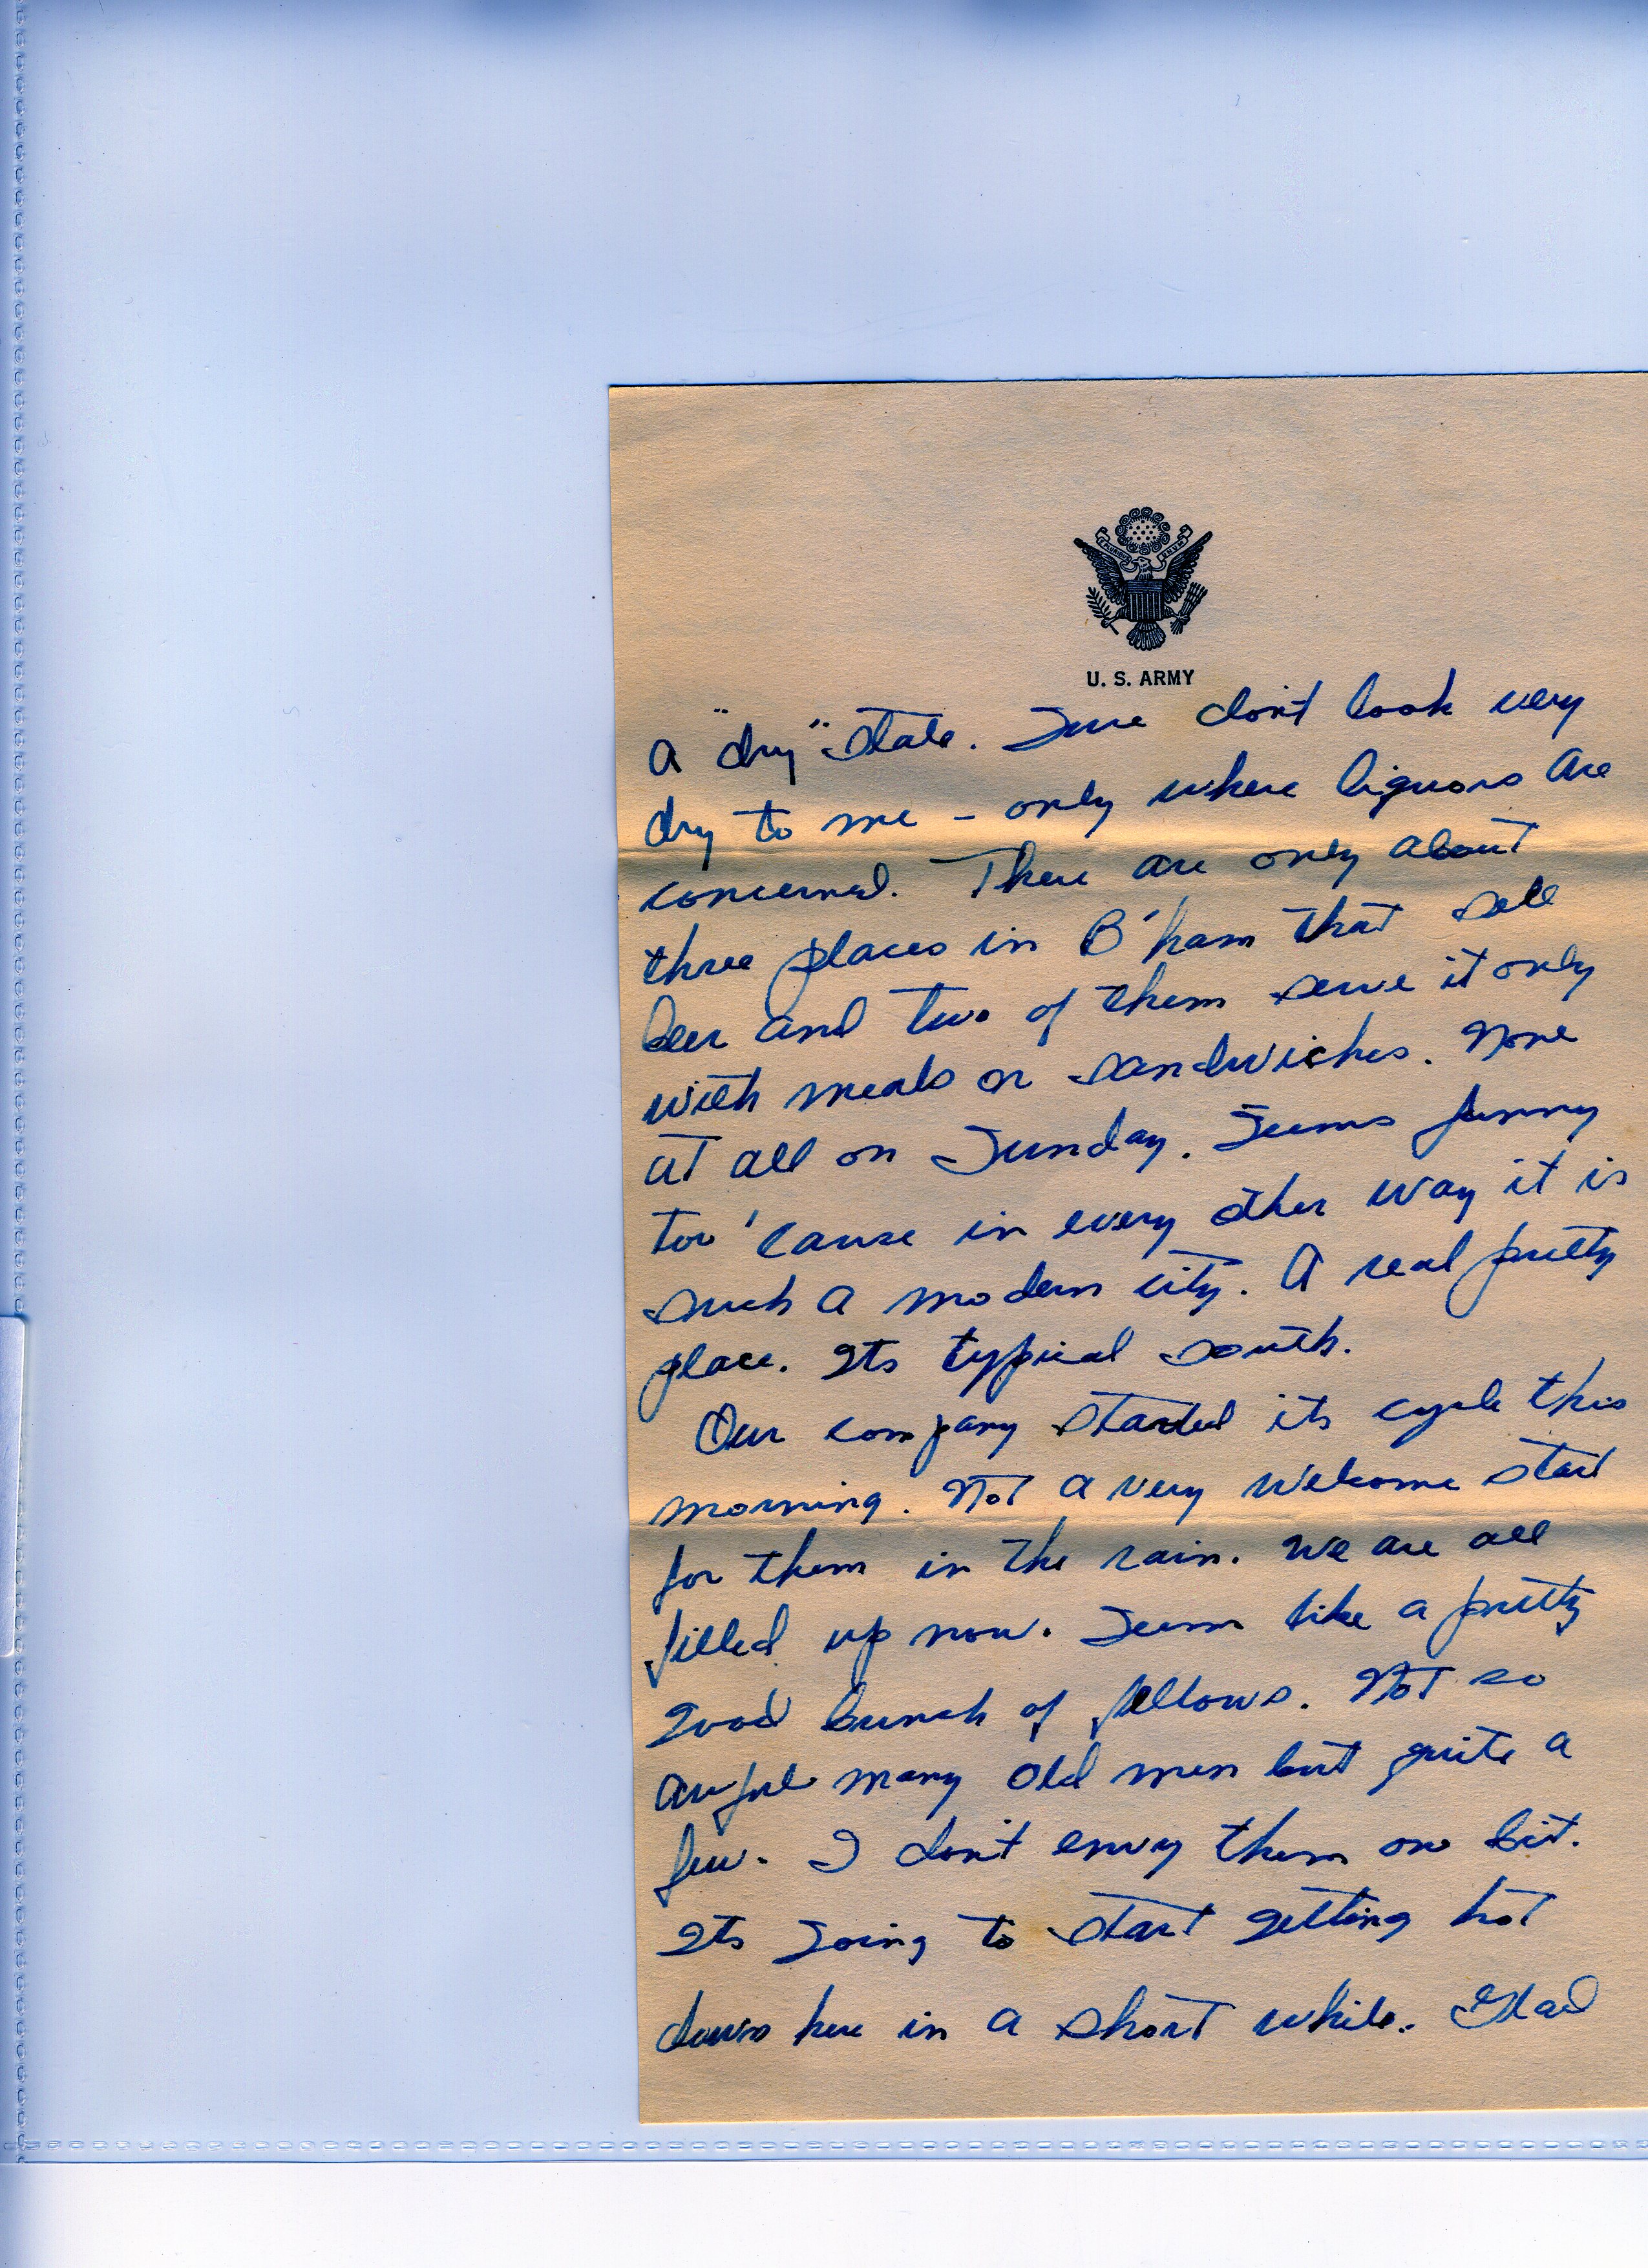 E PLURIBUS UNUM
U. S. ARMY
a "dry" state. Sure don't look very
dry to me - only where liquors are
concerned. There are only about
three places in B'ham that sell
beer and two of them serve it only
with meals or sandwiches. None
at all on Sunday. Seems funny
too 'cause in every other way it is
such a modern city. A real pretty
place. Its typical south.
Our company started its cycle this
morning. Not a very welcome start
for them in the rain. We are all
filled up now. Seem like a pretty
good bunch of fellows. Not so
awful many old men but quite a
few. I don't envy them one bit.
Its going to start getting hot
down here in a short while. Glad